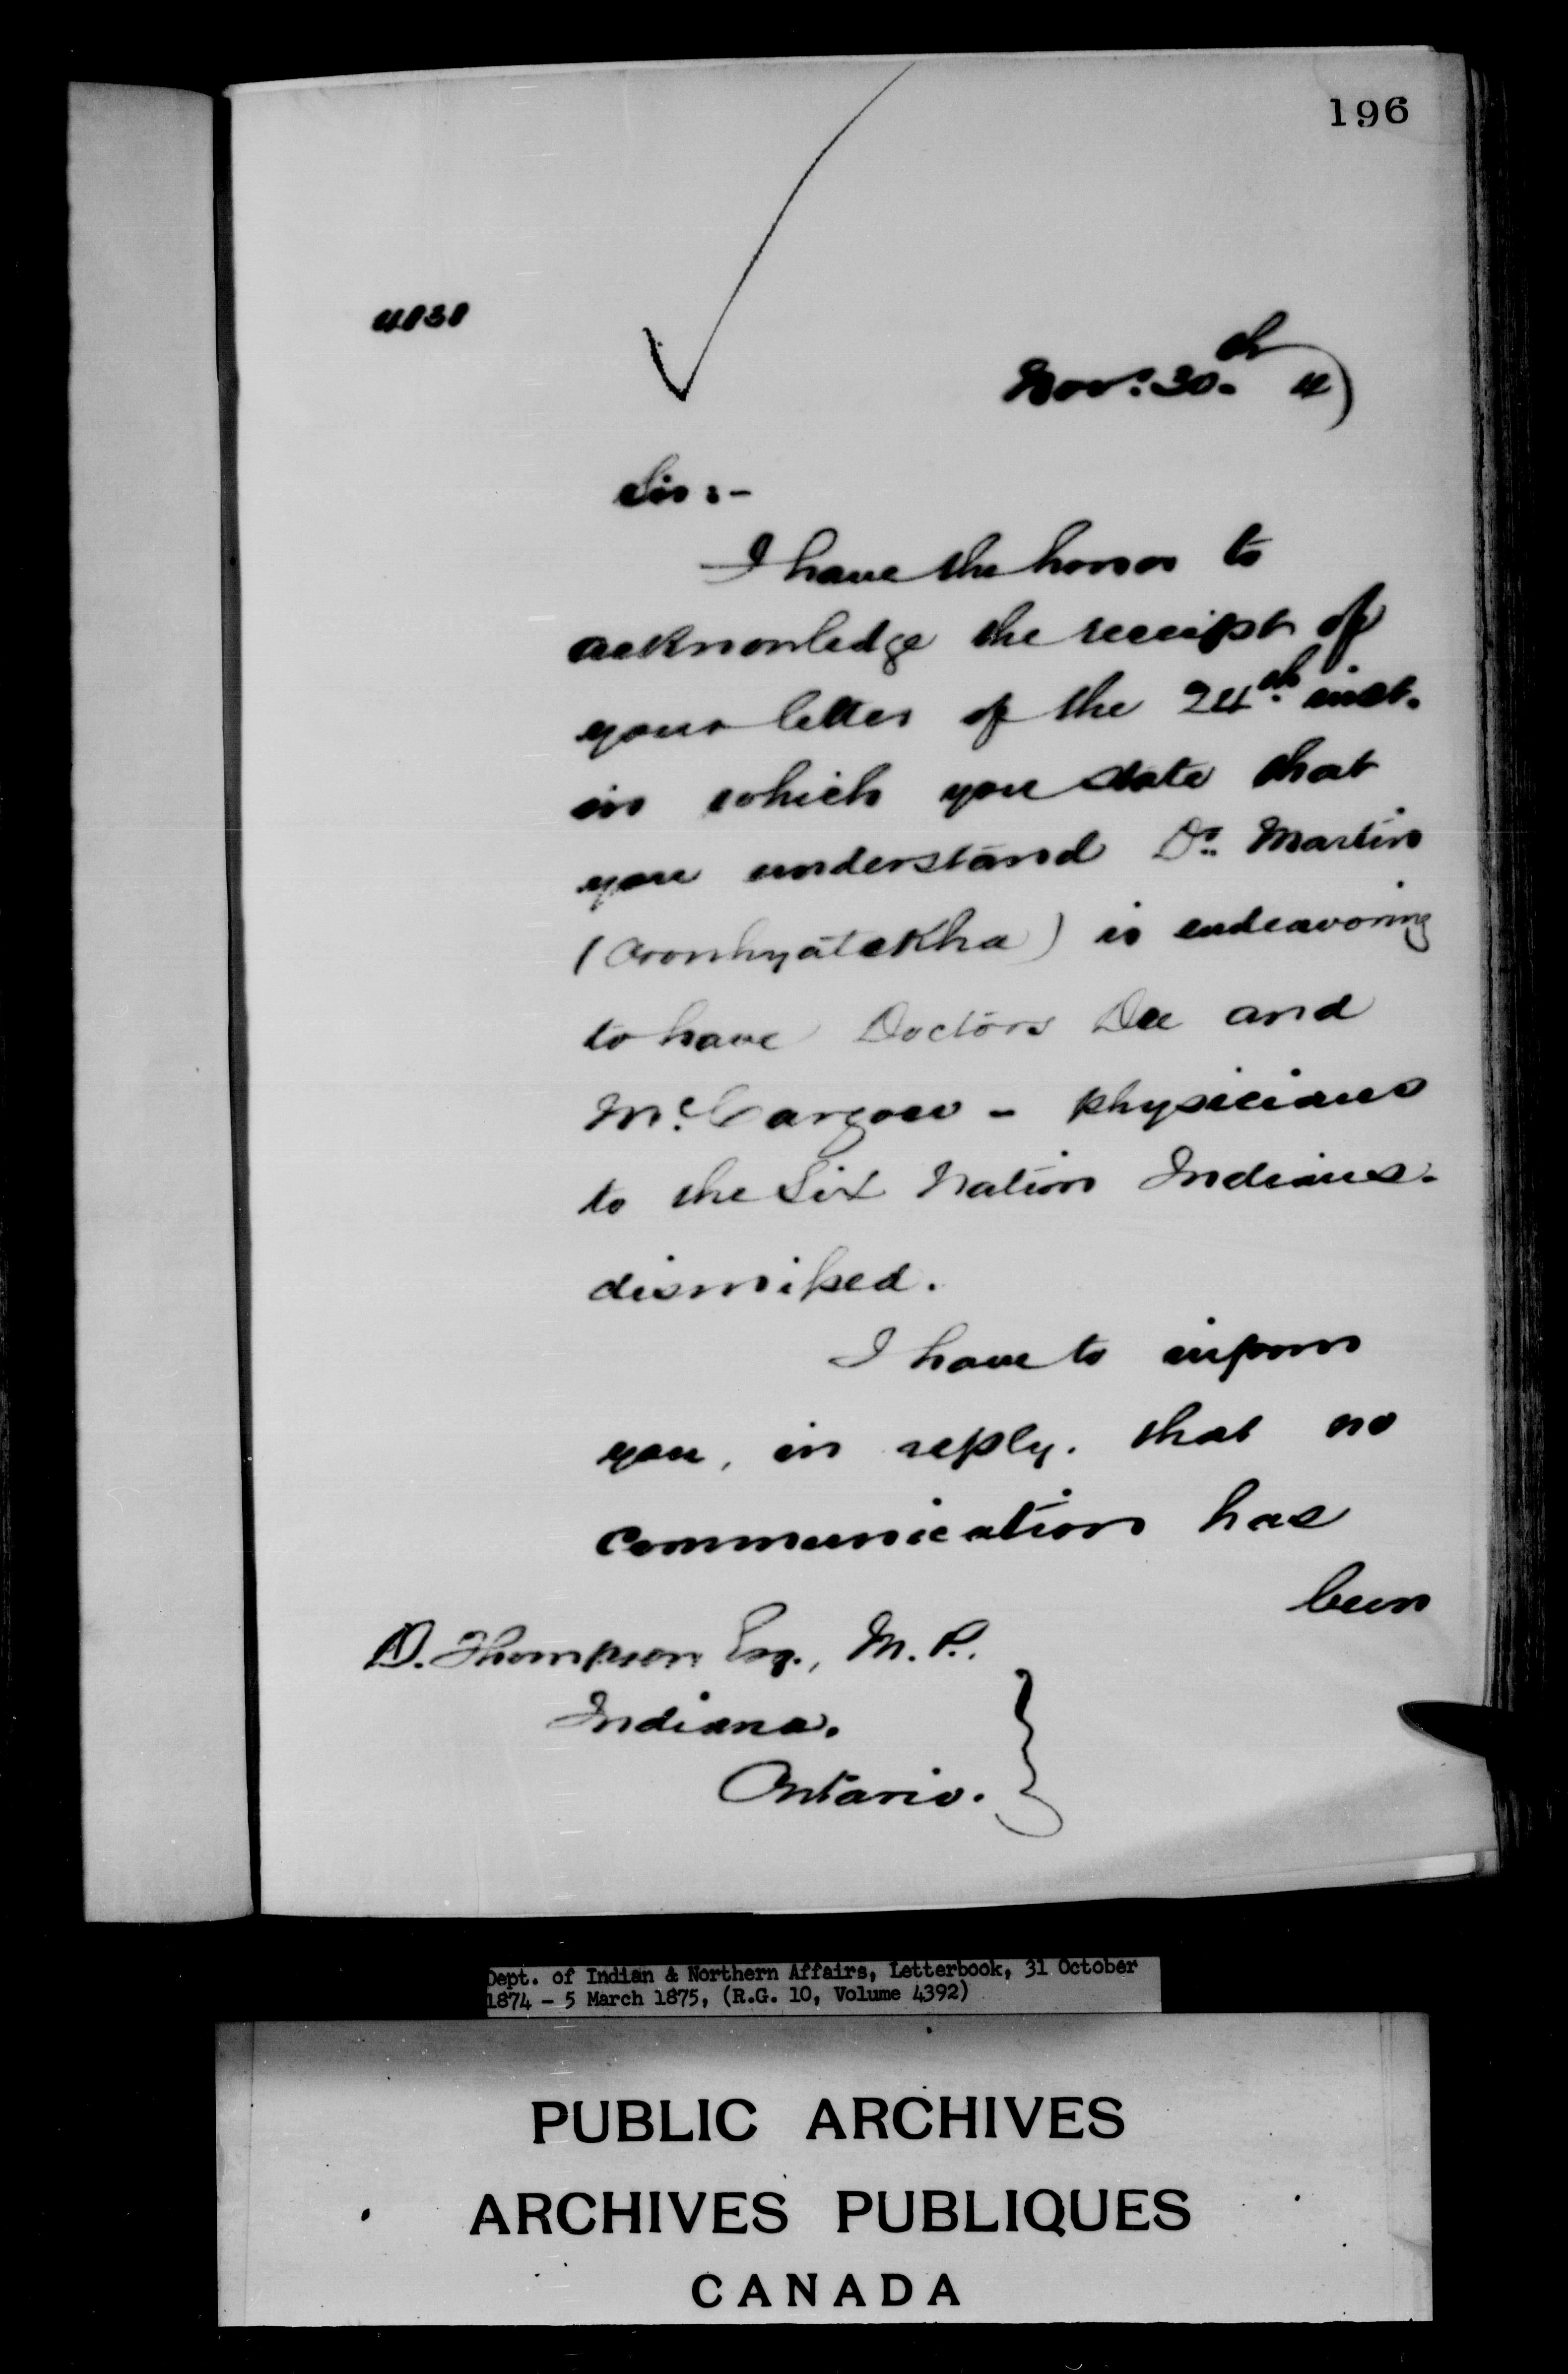 196
4030
Nov: 30th 4)
Sir:-
I have the honor to
acknowledge the receipt of
your letter of the 24th inst.
in which you state that
you understand Dr. Martin
(Oronhyatekha) is endeavoring
to have Doctors Dee and
McCargow - physicians
to the Six Nation Indians.
dismissed.
I have to inform
you, in reply. that no
communication has
been
D. Thompson Esq., M.P.
Indiana.
Ontario.
Dept. of Indian & Northern Affairs, Letterbook, 31 October
1874 - 5 March 1875, (R.G. 10, Volume 4392)
PUBLIC ARCHIVES
ARCHIVES PUBLIQUES
CANADA